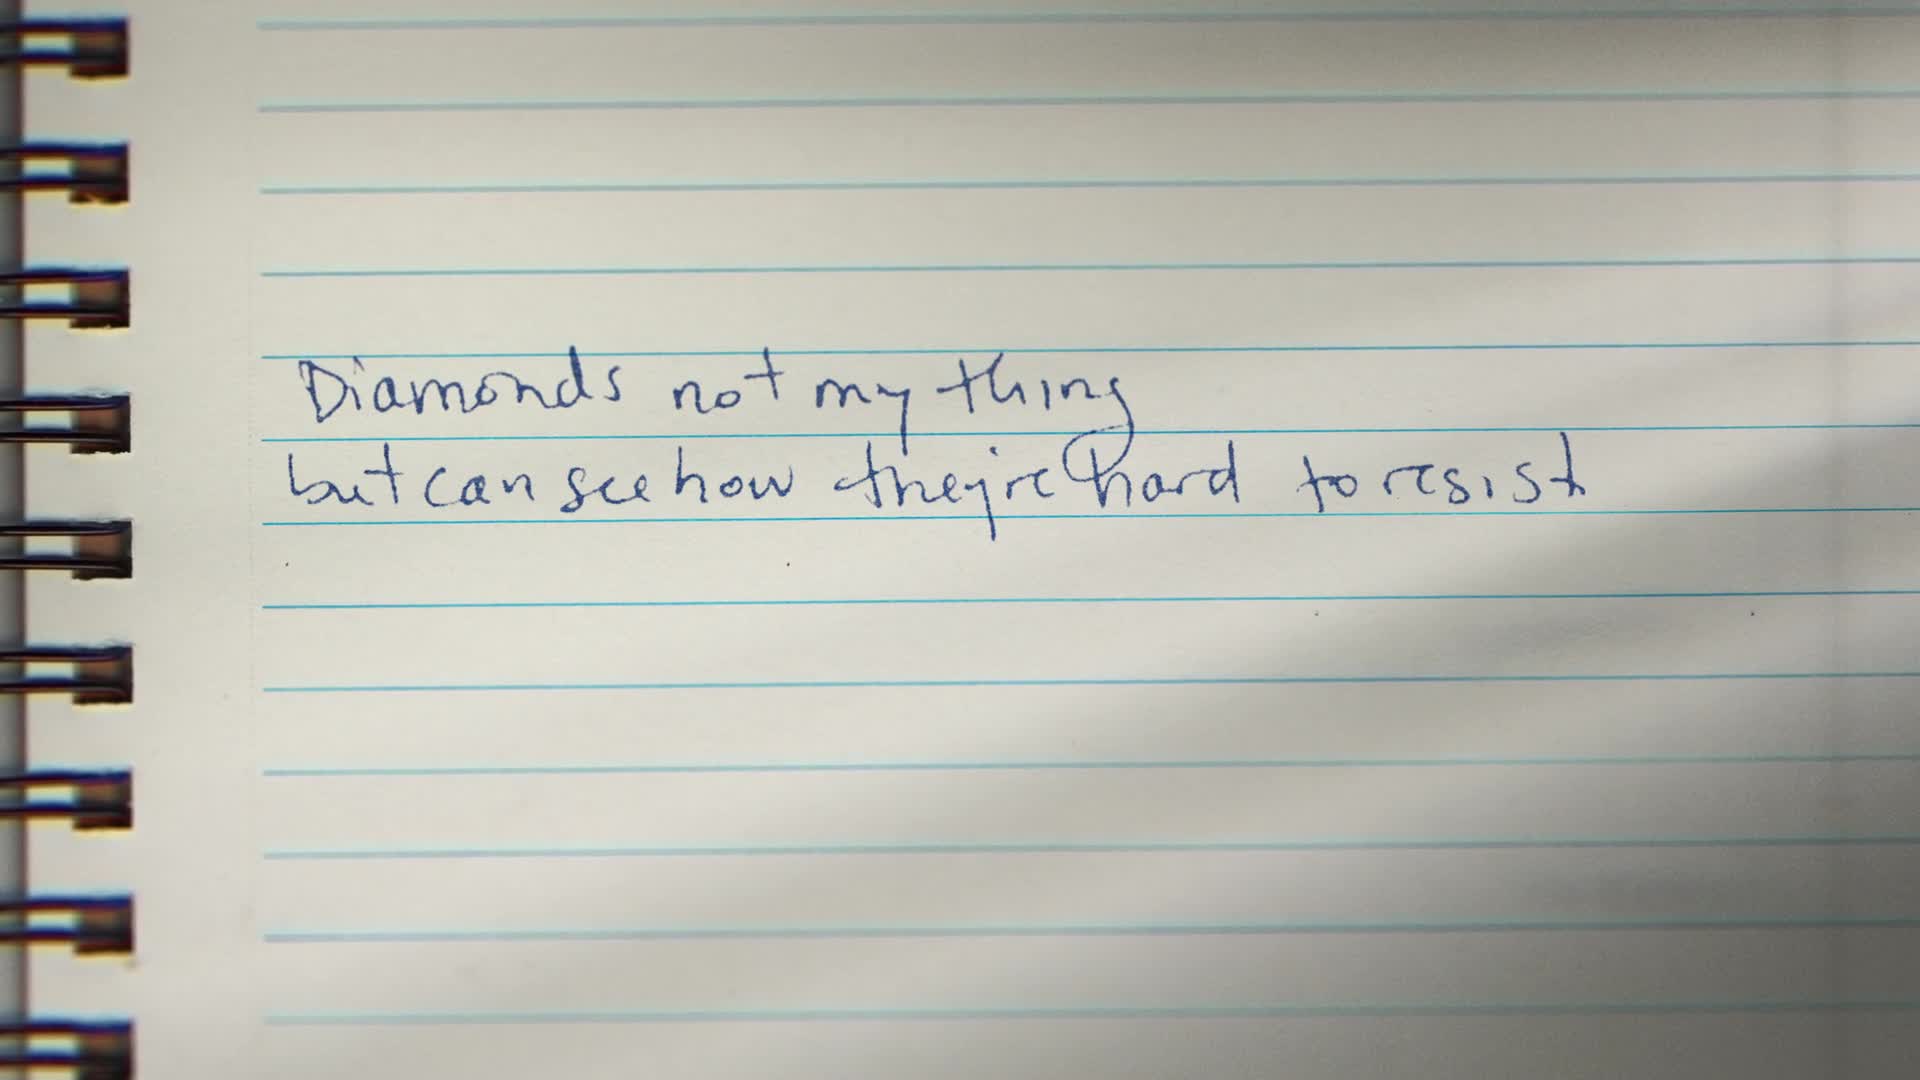 Diamonds not my thing
but can see how they're hard to resist